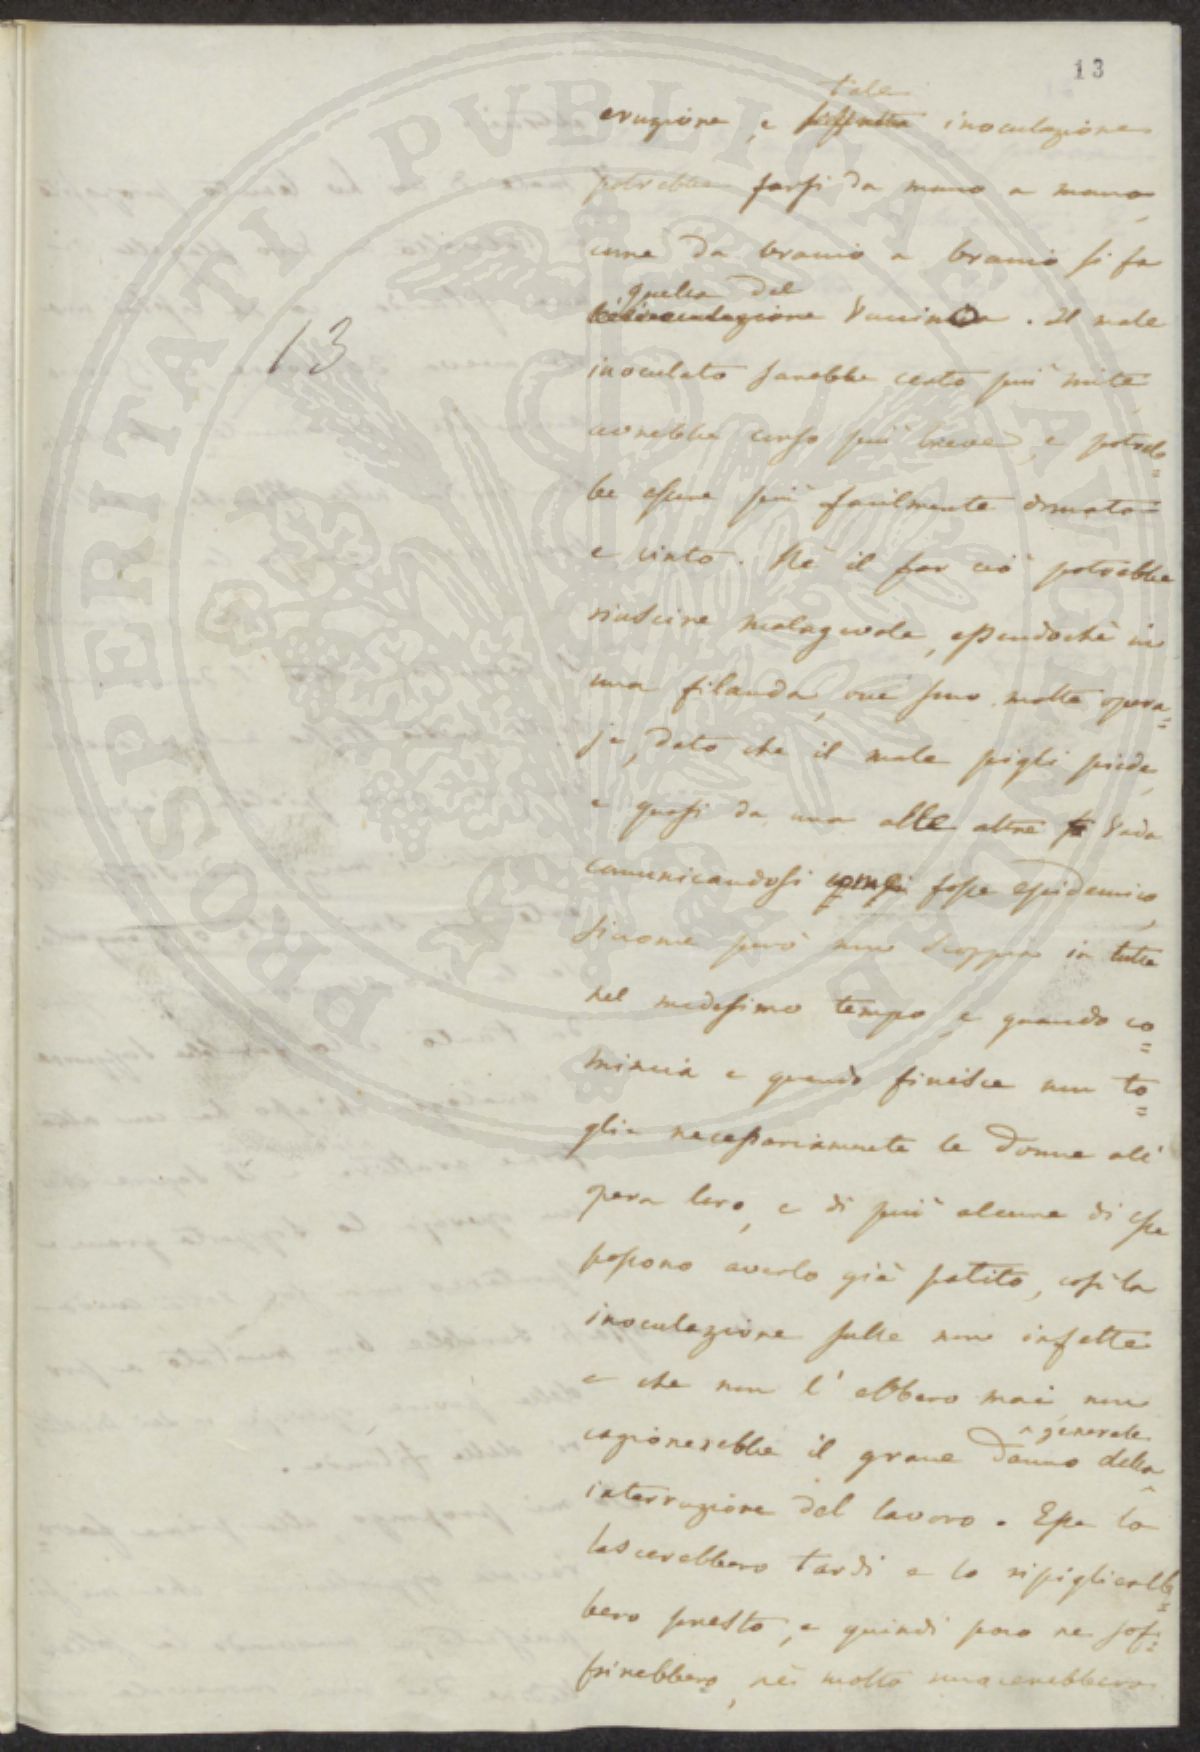 13
tale
eruzione, e siffatta inoculazione
potrebbe farsi da mano a mano,
come da braccio a braccio si fa
quella del
Vaccino. Il male
inoculato sarebbe certo più mite
avrebbe corso più breve, e potreb=
be essere più facilmente domato
e vinto. Nè il far ciò potrebbe
riuscire malagevole, essendochè in
una filanda, ove sono molte opera=
je, dato che il male pigli piede,
e quasi da una alle altre vada
comunicandosi come fosse epidemico,
siccome però non scoppia in tutte
nel medesimo tempo, e quando co=
mincia e quando finisce non to=
glie necessariamente le Donne all'
opera loro, e di più alcune di esse
possono averlo già patito, così la
inoculazione sulle non infette
e che non l'ebbero mai, non
cagionerebbe il grave Danno generale della
interruzione del lavoro. Esse lo
lascerebbero tardi e lo ripiglierebb=
bero presto, e quindi poco ne sof=
frirebbero, nè molto nuocerebbero
13
PROSPERITATI PUBLICAE AUGENDAE